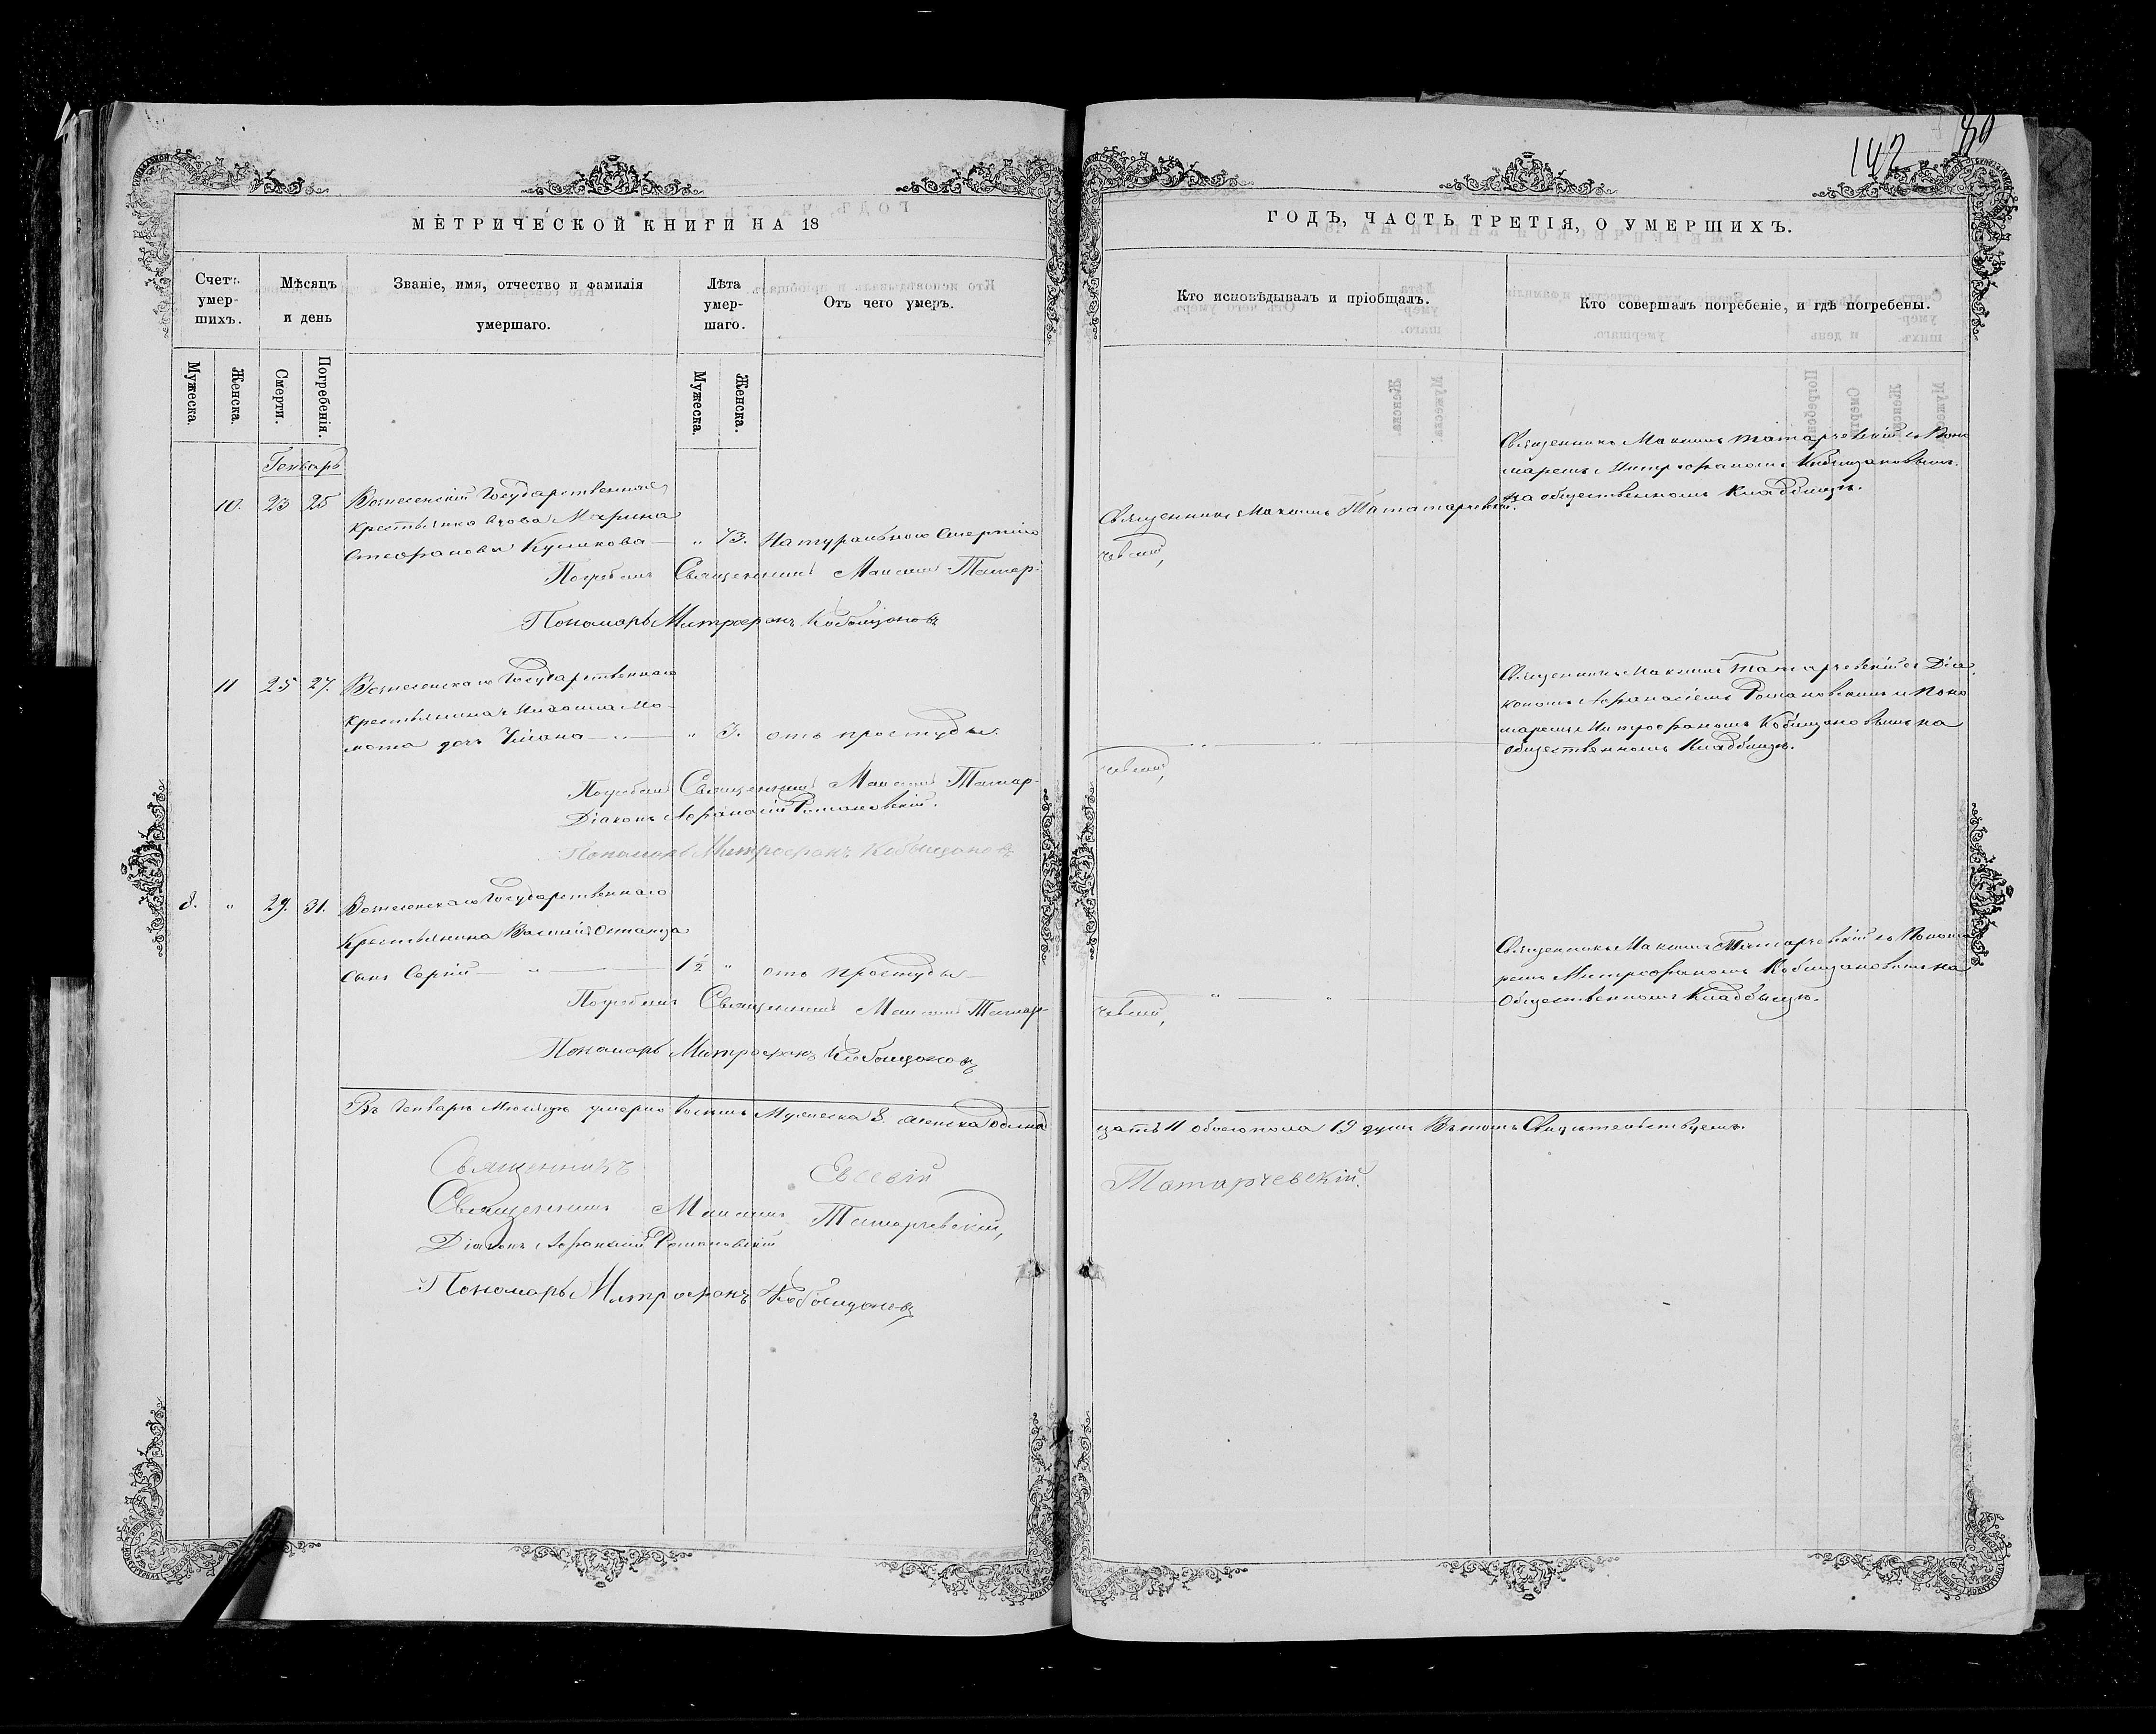 142 80
МЕТРИЧЕСКОЙ КНИГИ НА 18
ГОДЪ, ЧАСТЬ ТРЕТІЯ, О УМЕРШИХЪ.
Счетъ умер- шихъ.
Мѣсяцъ и день
Званіе, имя, отчество и фамилія умершаго.
Лѣта умер- шаго.
Отъ чего умеръ.
Кто исповѣдывалъ и пріобщалъ.
Кто совершалъ погребеніе, и гдѣ погребены.
Мужеска.
Женска.
Смерти.
Погребенія.
Мужеска.
Женска.
Генварь
10. 23 25 Вознесенскій Государственная
крестьянка вдова Марина
Стефанова Куликова — „ 73. Натуральною Смертію
Священникъ Максимъ Татарчевскій.
Священникъ Максимъ Татарчевскій съ Поно
маремъ Митрофаномъ Кобыщановымъ
на общественномъ Кладбищѣ.
Погребалъ Священникъ Максимъ Татар-
чевскій,
Пономарь Митрофанъ Кобыщановъ
11 25 27. Вознесенскаго Государственнаго
крестьянина
дочь — „ — „ 3. отъ простуды.
Священникъ Максимъ Татарчевскій съ Діа
кономъ Афанасіемъ Романовскимъ и Поно
маремъ Митрофаномъ Кобыщановымъ на
общественномъ Кладбищѣ.
Погребалъ Священникъ Максимъ Татар-
чевскій,
Діаконъ Афанасій Романовскій.
Пономарь Митрофанъ Кобыщановъ
8. „ 29. 31. Вознесенскаго Государственнаго
Крестьянина Василія
сынъ Сергій — „ — 1½ „ отъ простуды —
Священникъ Максимъ Татарчевскій съ Понома
ремъ Митрофаномъ Кобыщановымъ на
Общественномъ Кладбищѣ.
Погребалъ Священникъ Максимъ Татар-
чевскій,
Пономарь Митрофанъ Кобыщановъ
Въ Генварѣ Мѣсяцѣ умерло восемь Мужеска 8. женска одина
цать 11 обоего пола 19 душъ Въ томъ Свидѣтельствуемъ.
Священникъ Евсевій Татарчевскій.
Священникъ Максимъ Татарчевскій,
Діаконъ Афанасій Романовскій
Пономарь Митрофанъ Кобыщановъ